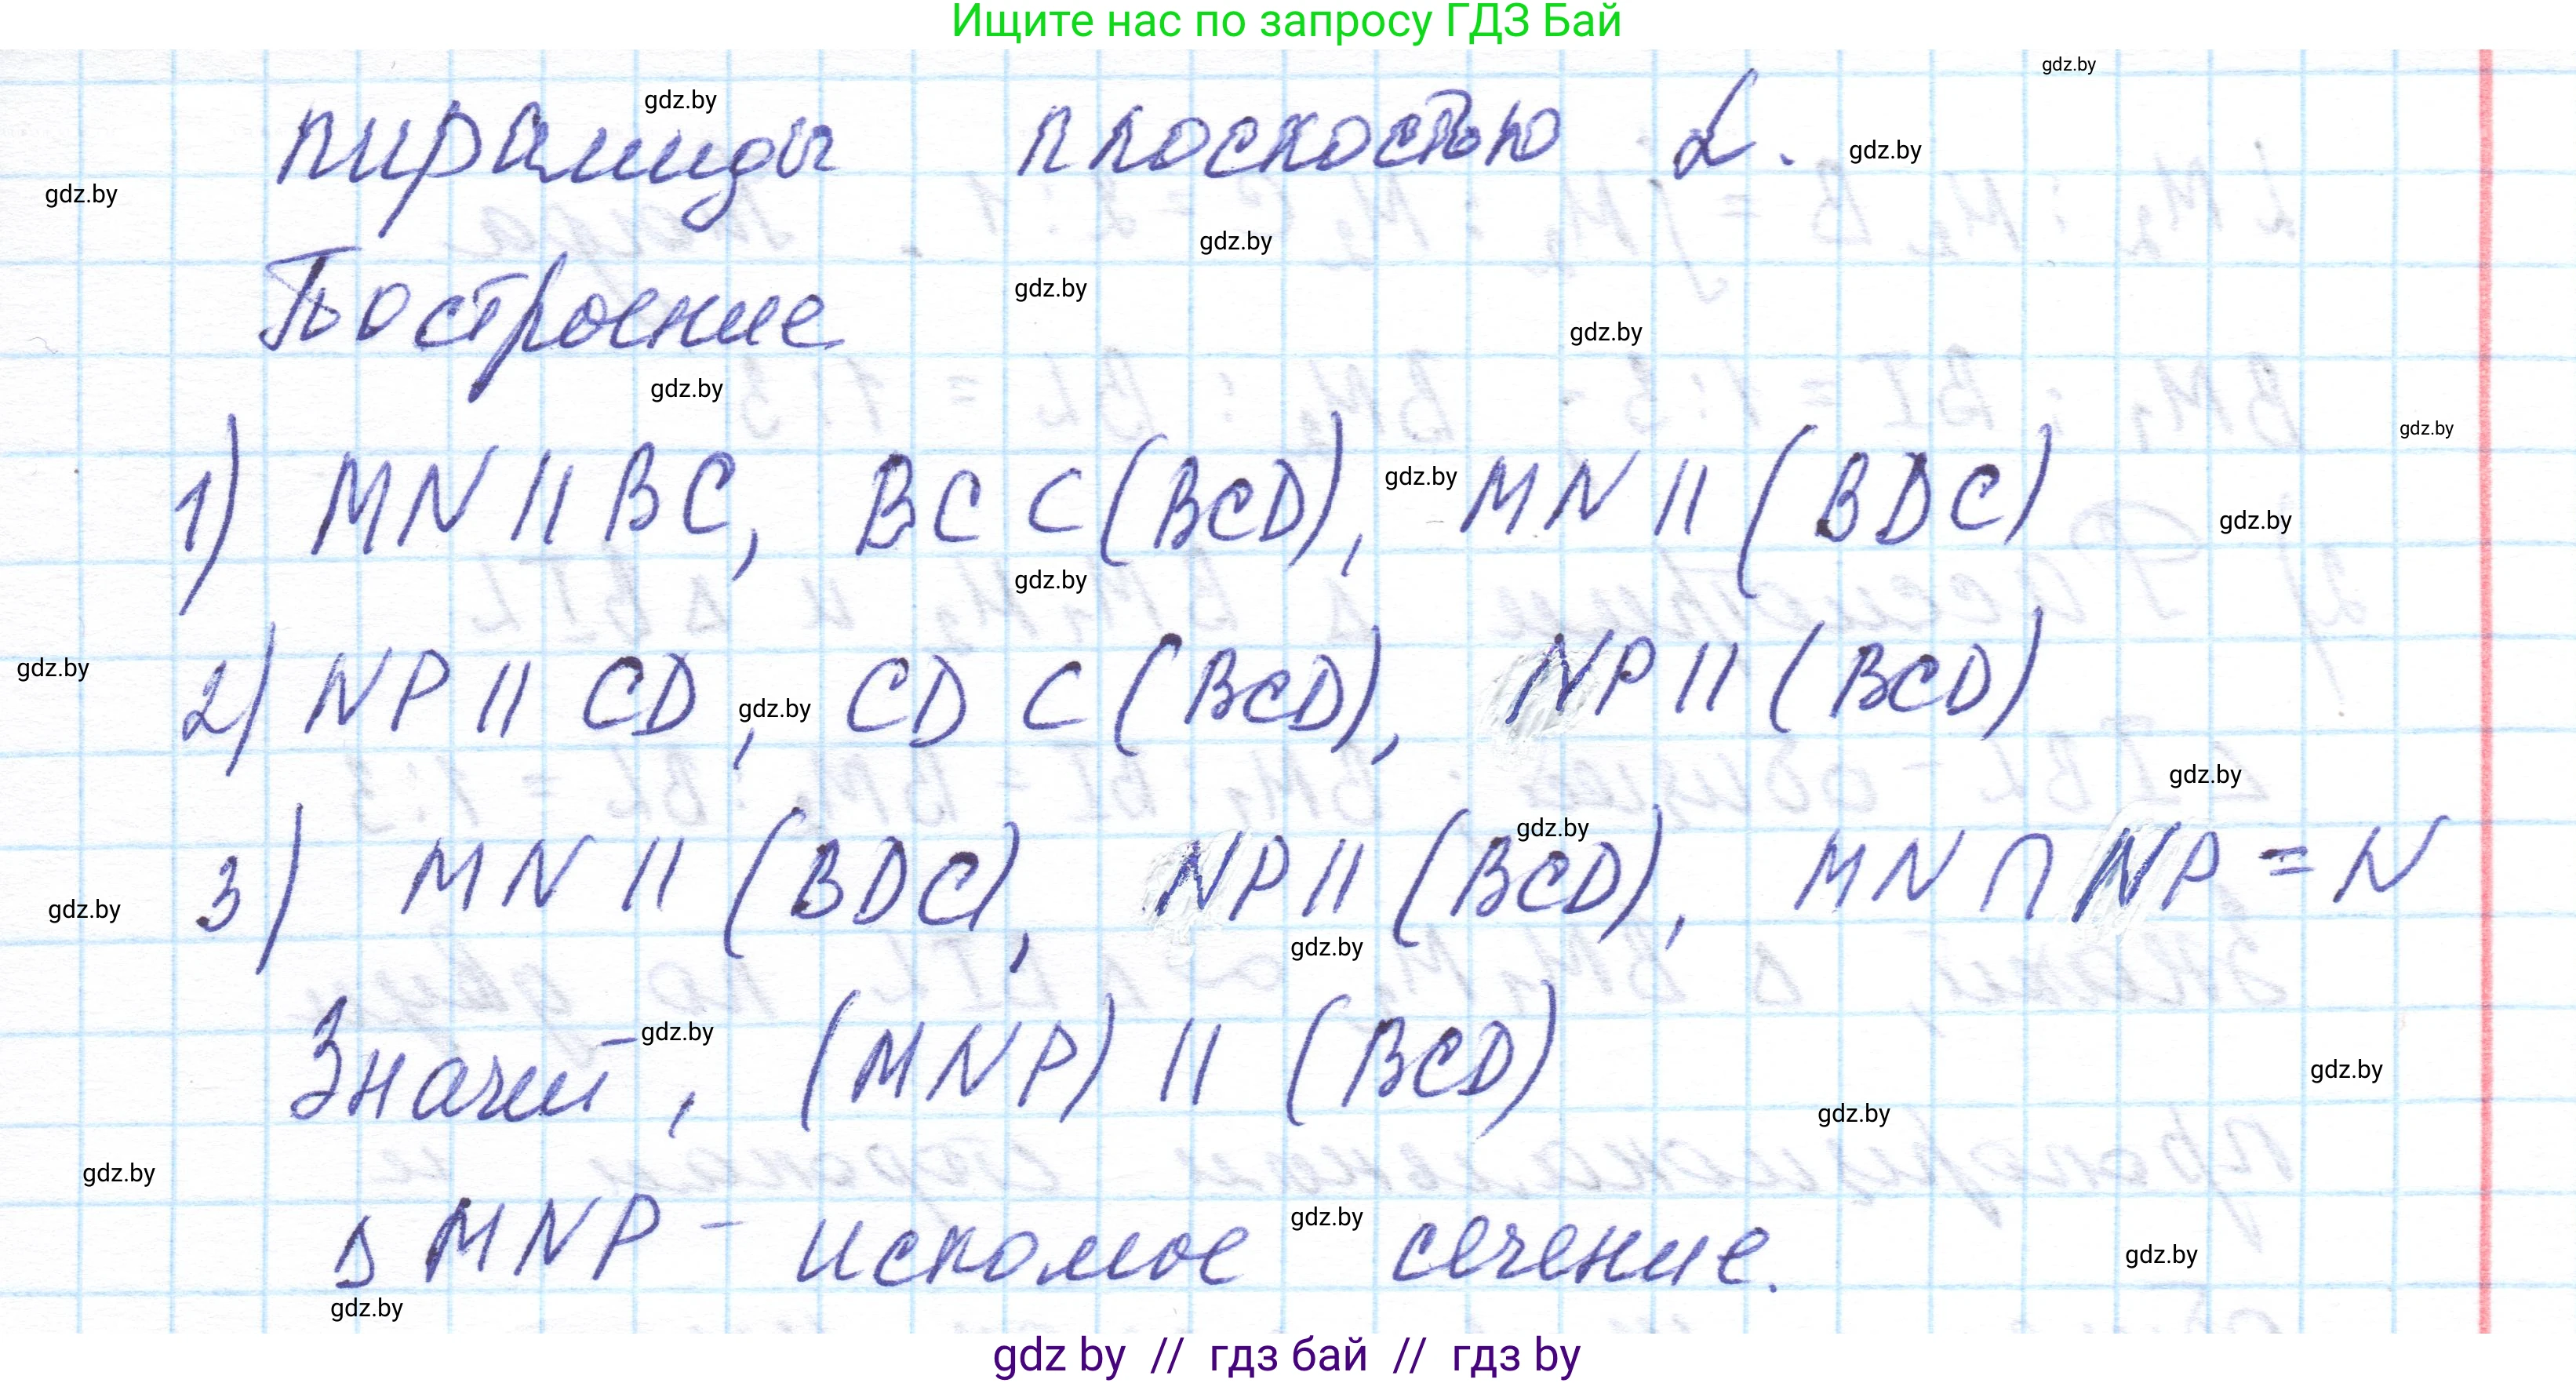 Ищите нас по запросу ГДЗ Бай
gdz.by
gdz.by
пирамиды плоскостью α.
gdz.by
gdz.by
gdz.by
gdz.by
Построение
gdz.by
gdz.by
gdz.by
1) MN || BC, BC ⊂ (BCD), gdz.by MN || (BDC)
gdz.by
gdz.by
gdz.by
2) NP || CD, gdz.by CD ⊂ (BCD), NP || (BCD)
gdz.by
gdz.by
3) MN || (BDC), NP || (BCD), MN ∩ NP = N
gdz.by
gdz.by
Значит, gdz.by (MNP) || (BCD)
gdz.by
gdz.by
gdz.by
Δ MNP - искомое gdz.by сечение.
gdz.by
gdz.by
gdz by // гдз бай // гдз by